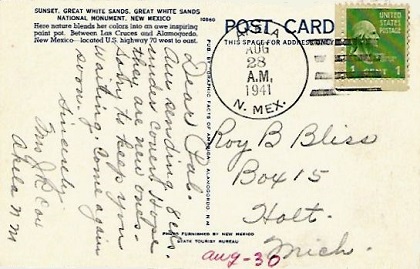 SUNSET, GREAT WHITE SANDS, GREAT WHITE SANDS
NATIONAL MONUMENT, NEW MEXICO
10960
Here nature blends her colors into an awe inspiring
paint pot. Between Las Cruces and Alamogordo,
New Mexico—located U.S. highway 70 west to east.
Dear Pal.
Am sending 8 cds.
under cover. Hope
they are new ones.
to keep you
waiting. Come again
soon.
Sincerely
Mrs J R Cox
Akela N M
PUB. BY GRAPHIC FACTS OF AMERICA, ALAMOGORDO, N.M.
PHOTO FURNISHED BY NEW MEXICO
STATE TOURIST BUREAU
POST CARD
THIS SPACE FOR ADDRESS ONLY
AKELA
AUG
28
A.M.
1941
N. MEX.
UNITED STATES
POSTAGE
1 CENT 1
Roy B Bliss
Box 15
Holt.
Mich.
aug-30